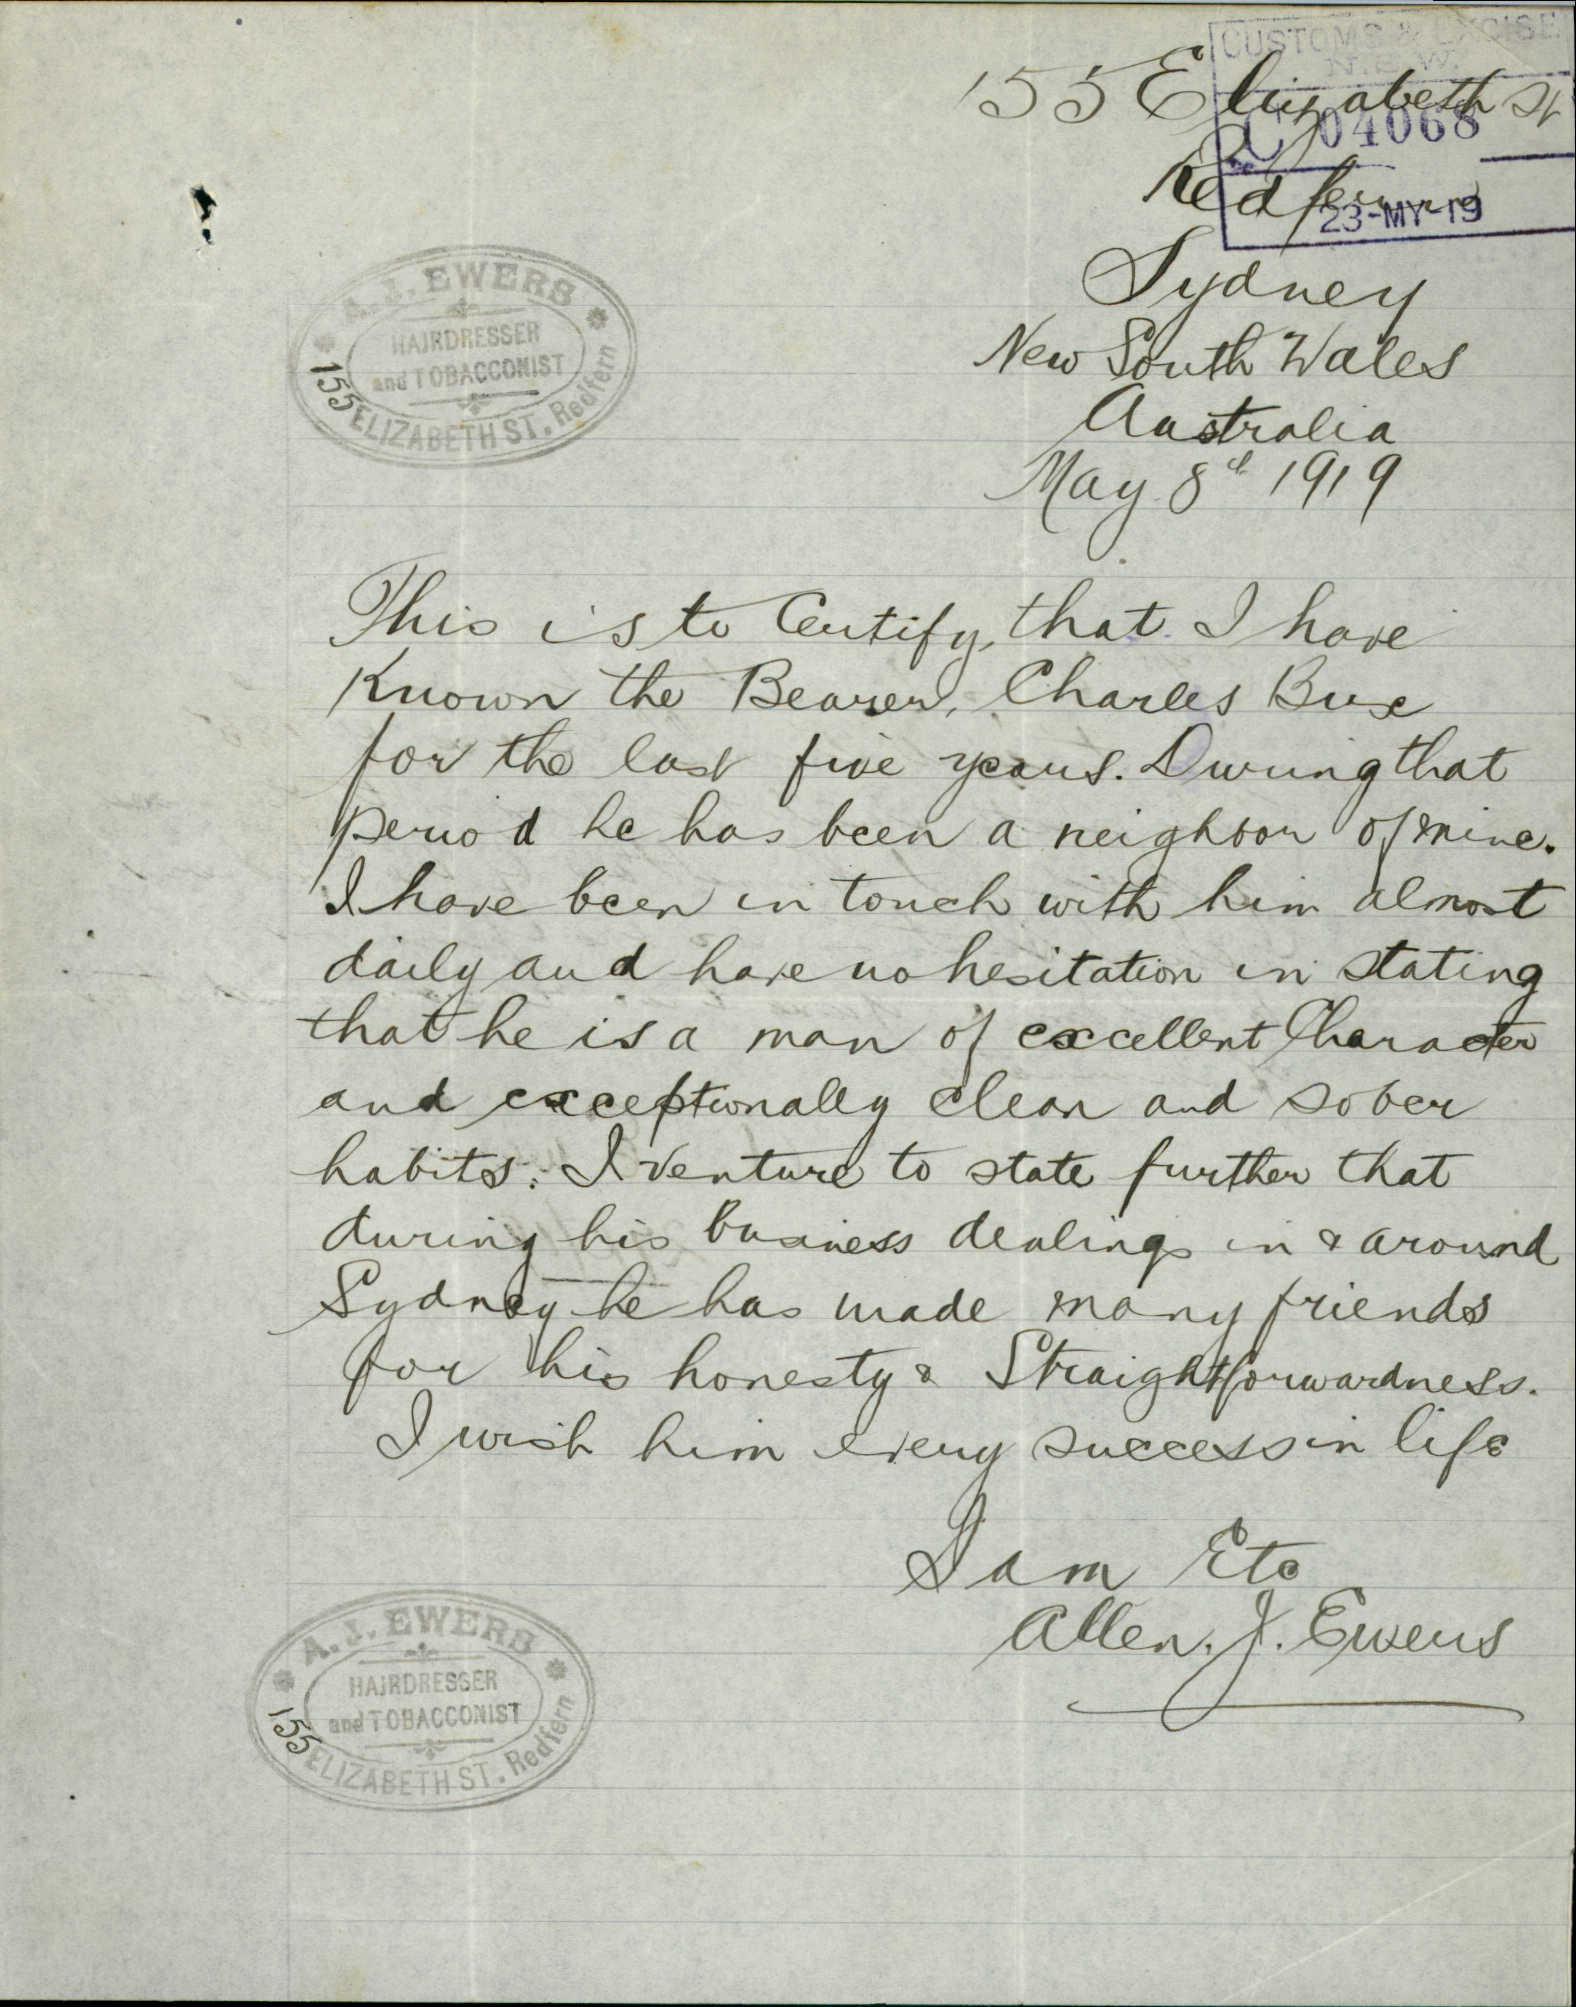 CUSTOMS & EXCISE
N.S.W.
155 Elizabeth St
C 04068
Redferne
23-MY-19
Sydney
New South Wales
Australia
May 8th 1919
A.J. EWERS
HAIRDRESSER
and TOBACCONIST
155 ELIZABETH ST. Redfern
This is to Certify, that I have
Known the Bearer, Charles Bux
for the last five years. During that
period he has been a neighbor of mine.
I have been in touch with him almost
daily and have no hesitation in stating
that he is a man of excellent Character
and exceptionally clean and sober
habits. I venture to state further that
during his business dealings in & around
Sydney he has made many friends
for his honesty & Straightforwardness.
I wish him every success in life
I am Etc
Allen. J. Ewers
A.J. EWERS
HAIRDRESSER
and TOBACCONIST
155 ELIZABETH ST. Redfern